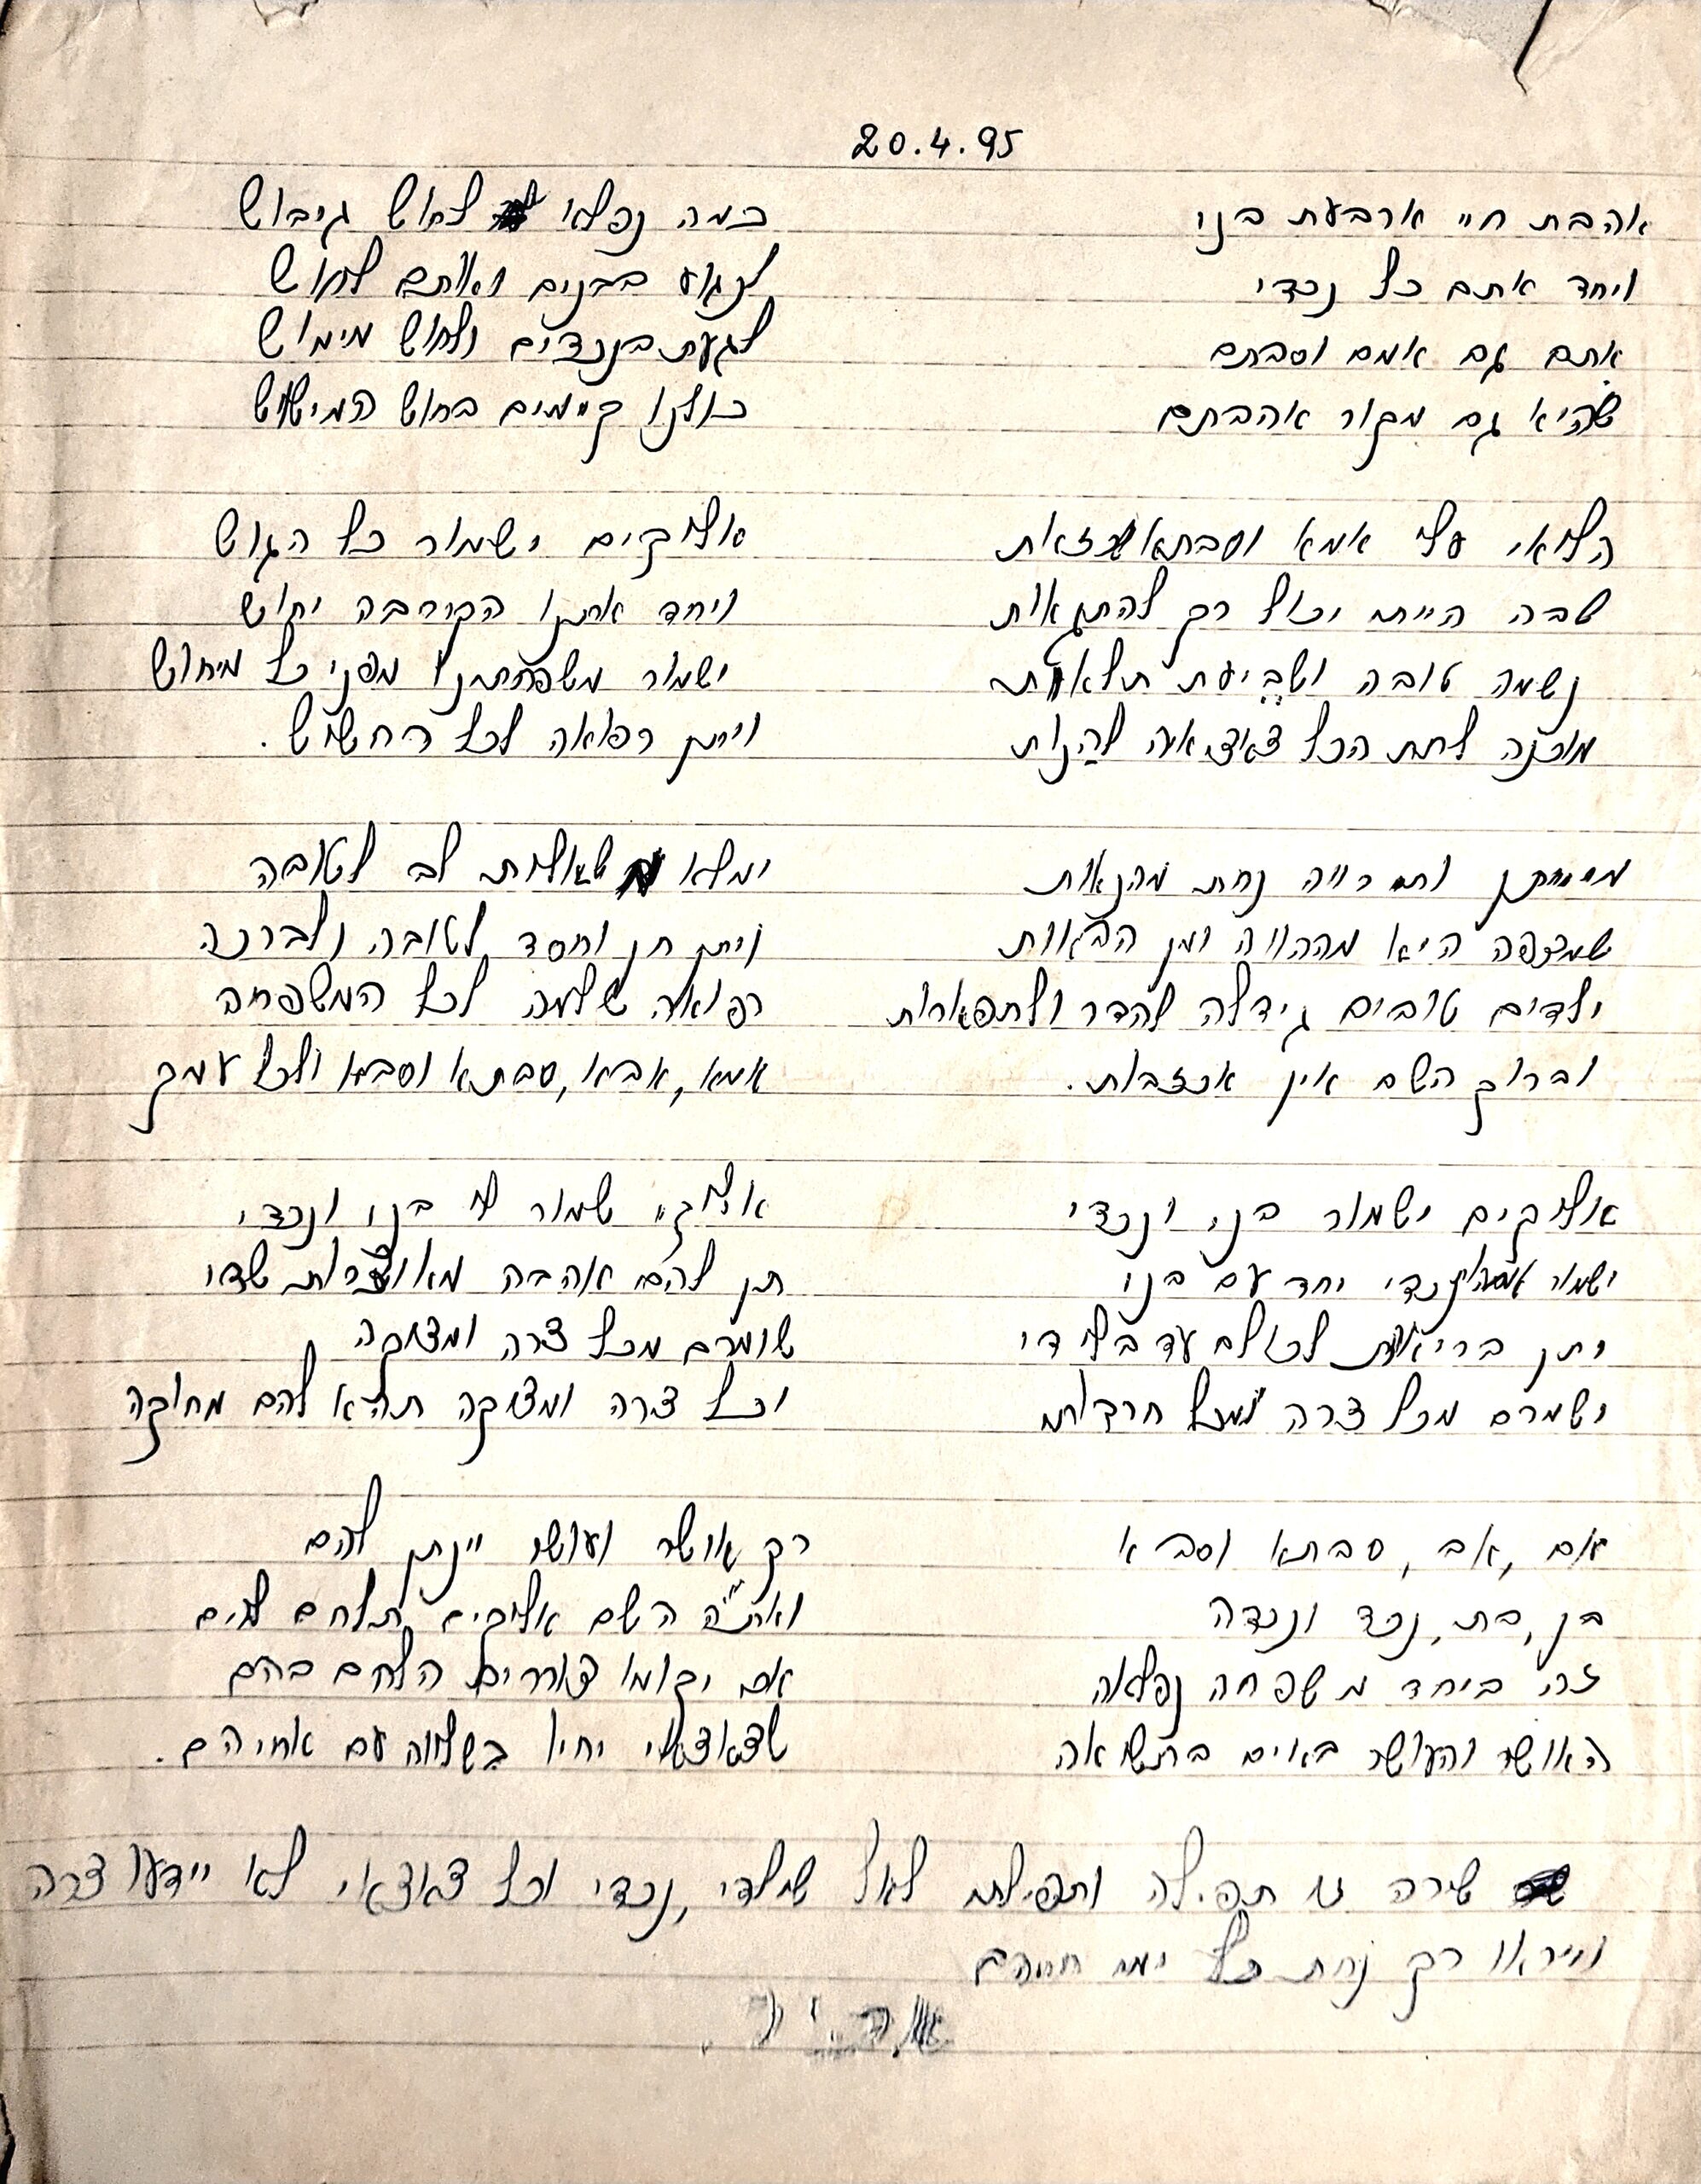 20.4.95
אהבת חיי ארבעת בניי
ויחד אתם כל נכדי
אתם גם אמם וסבתם
שהיא גם מקור אהבתם
הלואי עלי אמא וסבתא שכזאת
שבה הייתי יכול רק להתגאות
נשמה טובה ושביעת תלאות
מוכנה לתת הכל צאצאיה להנות
ותרוויה נחת מהנאות
שמצפה היא מההווה ומן הבאות
ילדים טובים גידלה להדר ולתפארות
וברוך השם אין אכזבות.
אלוקים ישמור בני ונכדי
ישמור נכדי יחד עם בניי
יתן בריאות לכולם עד בלי די
ישמרם מכל צרה ומכל חרדות
אם, אב, סבתא וסבא
בן, בת, נכד ונכדה
זה ביחד משפחה נפלאה
האושר והעושר באים בתשואה
כמה נפלא לחוש גיבוש
לנגוע בבנים ואותם לחוש
לגעת בנכדים ולחוש מימוש
כולנו קיימים בחוש המישוש
אלוקים ישמור כל הגוש
ויחד אתנו הקירבה יחוש
ישמור משפחתנו מפני כל מיחוש
וייתן רפואה לכל רחשוש.
ימלא שאלות לב לטובה
וייתן חן וחסד לטובה ולברכה
רפואה שלמה לכל המשפחה
אמא, אבא, סבתא וסבא ולכל עמך
אלוקיי שמור לי בניי ונכדי
תן להם אהבה מאוצרות שדי
שומרם מכל צרה ומצוקה
וכל צרה ומצוקה תהא להם מחוקה
רק אושר ועושר יינתן להם
ואת״ה השם אלוקים תלחם להם
אם יקומו צוררים הלחם בהם
שצאצאי יחיו בשלווה עם אחיהם.
שירה זו תפילה ותפילתי לאל שילדי, נכדי וכל צאצאי לא יידעו צרה
וייראו רק נחת כל ימי חייהם